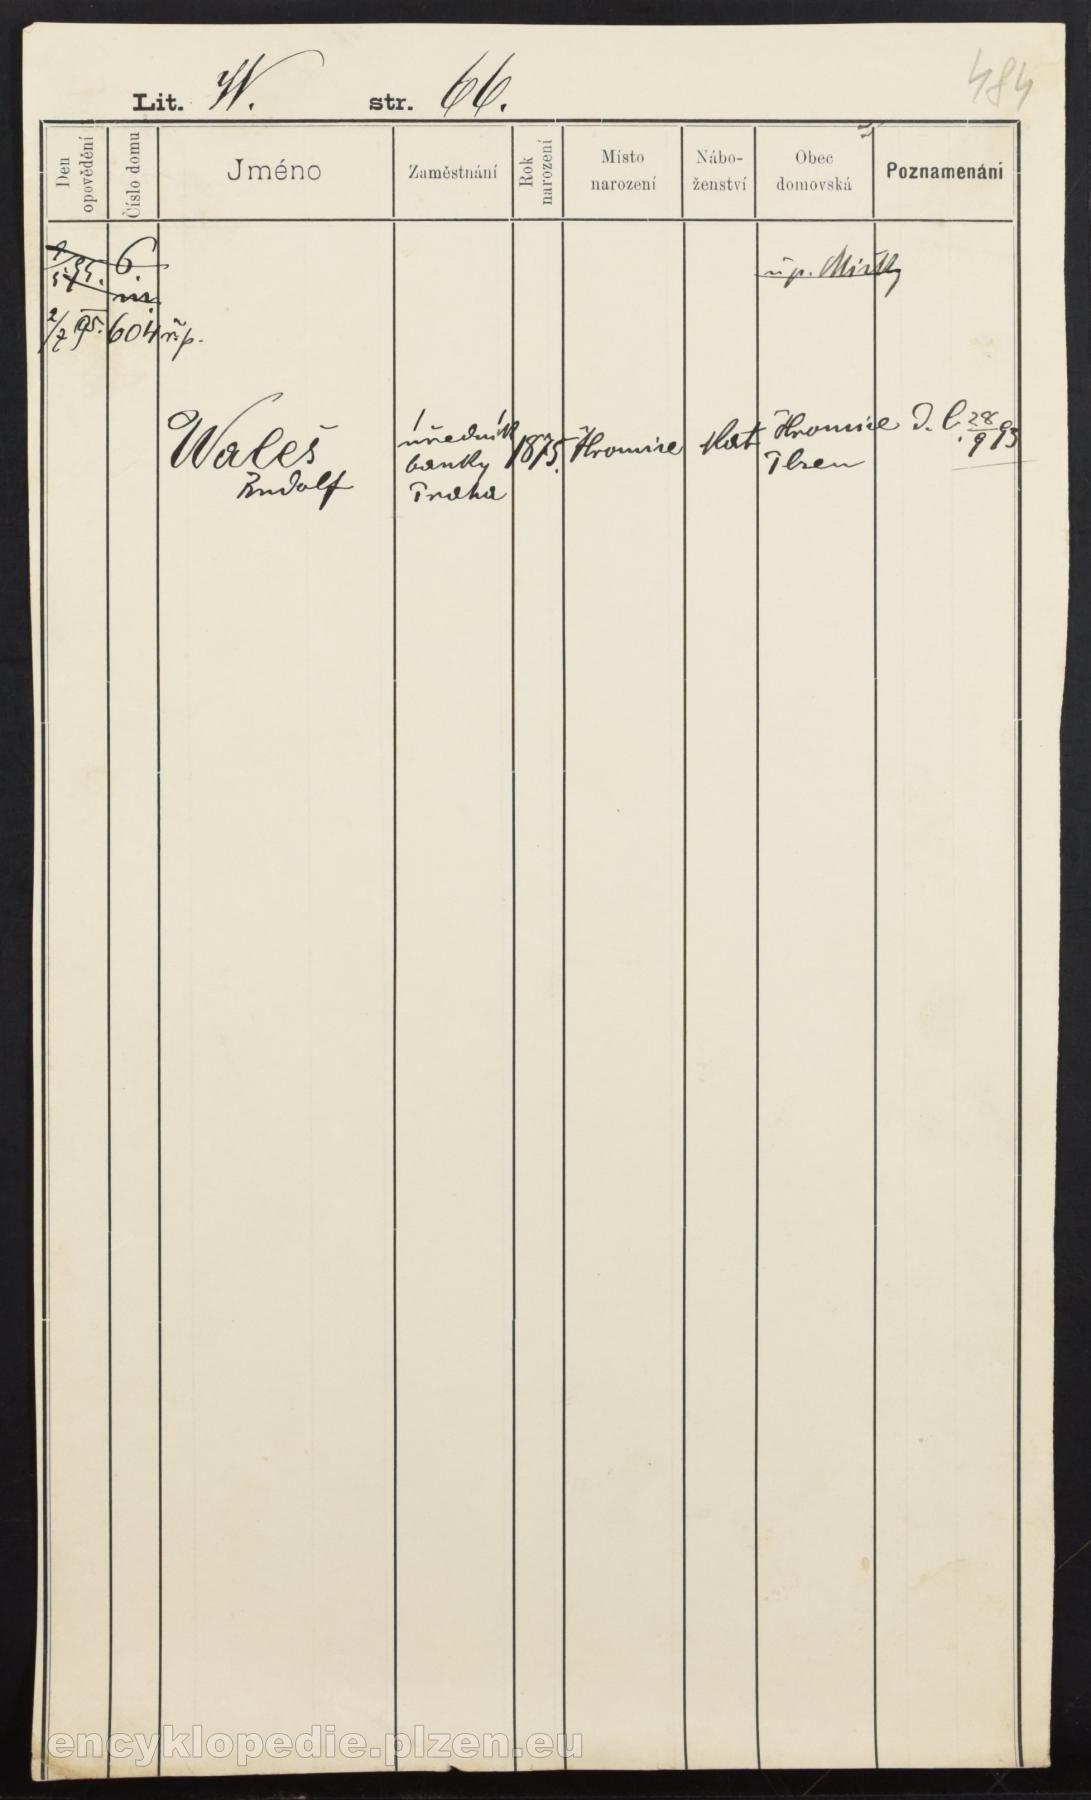 484
Lit. W. str. 66.
Den opovědění
Číslo domu
Jméno
Zaměstnání
Rok narození
Místo narození
Nábo-
ženství
Obec domovská
Poznamenání
6.
2/7 95. 604 ř.p.
Waleš
Rudolf
úředník
banky
Praha
1875.
Hromice
Kat
Hromice
Plzen
D. l. 28/9 93
encyklopedie.plzen.eu